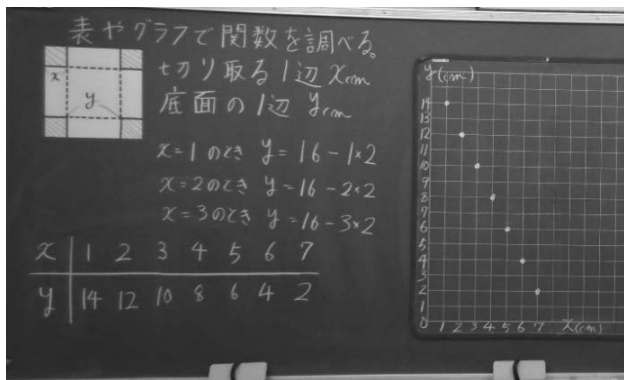 表やグラフで関数を調べる。
切り取る1辺 xcm
底面の1辺 ycm
x
y
x=1のとき y=16-1×2
x=2のとき y=16-2×2
x=3のとき y=16-3×2
x 1 2 3 4 5 6 7
y 14 12 10 8 6 4 2
y(cm)
14
13
12
11
10
9
8
7
6
5
4
3
2
1
0 1 2 3 4 5 6 7 x(cm)